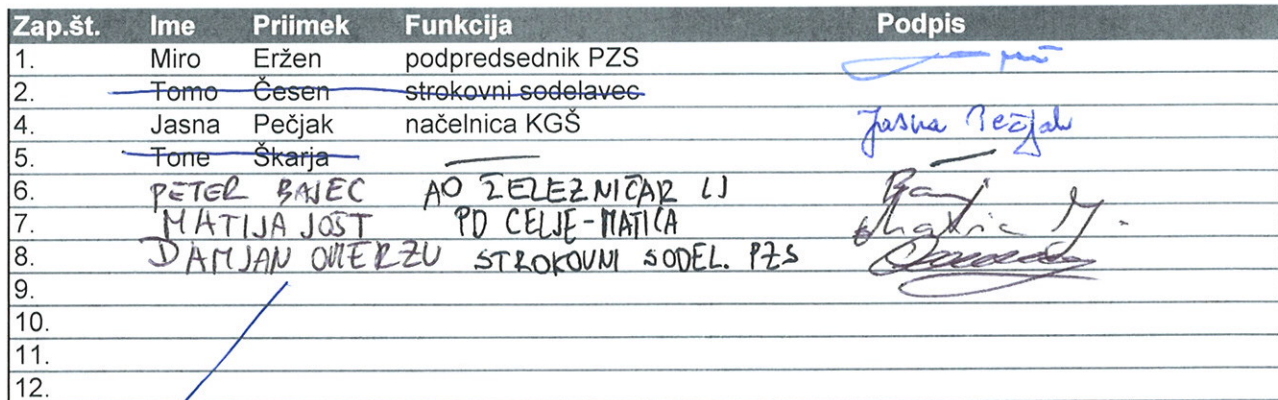 Zap.št. Ime Priimek Funkcija Podpis
1. Miro Eržen podpredsednik PZS
2. Tomo Česen strokovni sodelavec
4. Jasna Pečjak načelnica KGŠ Jasna Pečjak
5. Tone Škarja
6. PETER BAJEC AO ŽELEZNIČAR LJ
7. MATIJA JOŠT PD CELJE-MATICA
8. DAMJAN OMERZU STROKOVNI SODEL. PZS
9.
10.
11.
12.